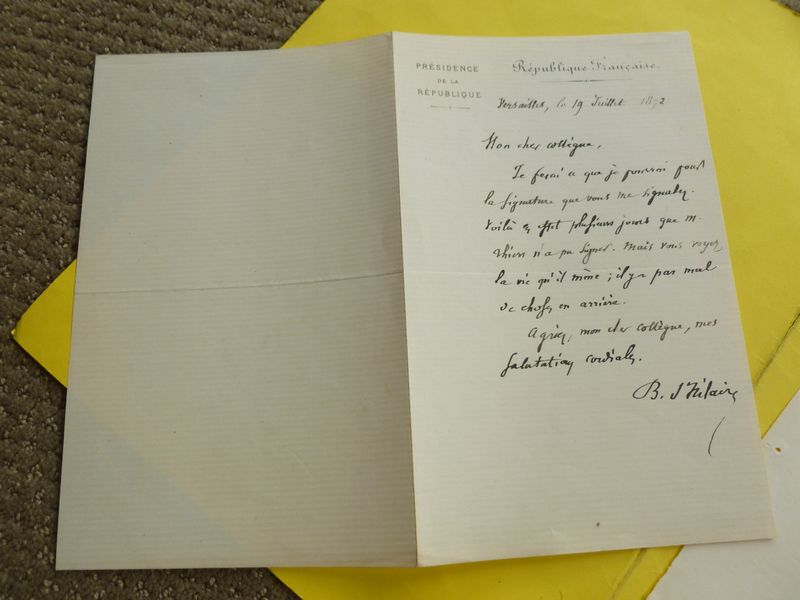 PRÉSIDENCE
DE LA
RÉPUBLIQUE
République Française.
Versailles, le 19 Juillet 1872
Mon cher collègue,
Je ferai ce que je pourrai pour
la signature que vous me signalez.
Voilà en effet plusieurs jours que M.
Thiers n'a pu signer. Mais vous voyez
la vie qu'il mène ; il y a pas mal
de choses en arrière.
Agréez, mon cher collègue, mes
salutations cordiales.
B. St Hilaire